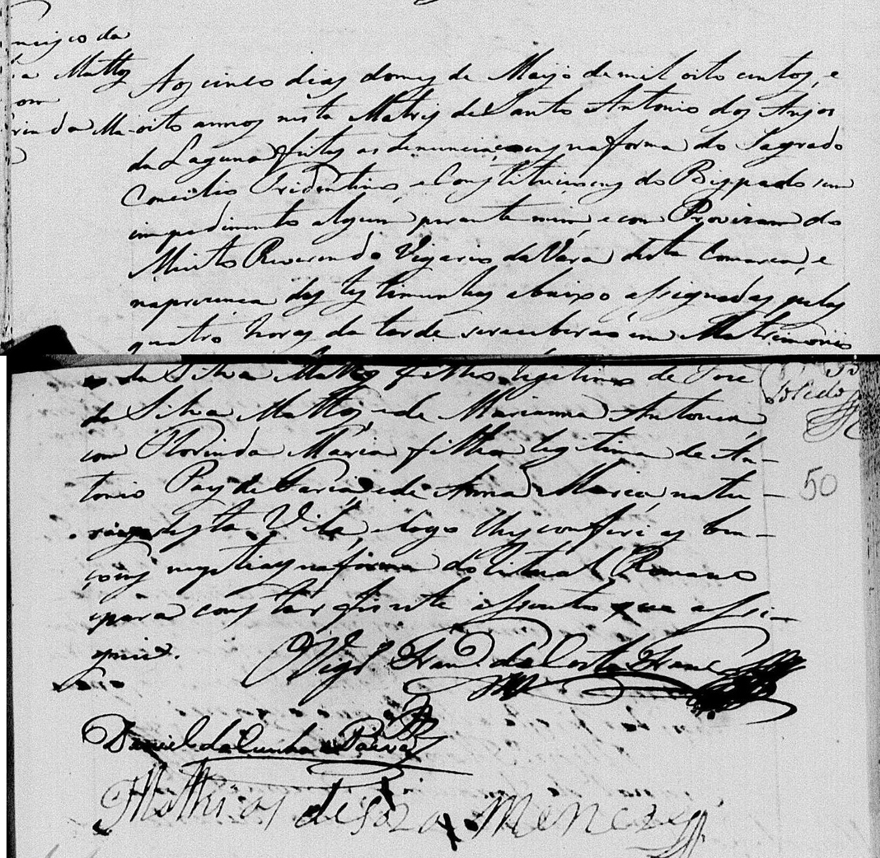 ncisco da
a Mattos
om
rinda Ma-
Aos cinco dias domes de Maijo de mil oito centos, e
oito annos nesta Matris de Santo Antonio dos Anjos
da Laguna feitas as denunciaçoens naforma do Sagrado
Concilio Tridentino, e Constituiçoens do Bispado sem
impedimento algum perante mim e com Provizam do
Muito Reverendo Vigario da Vara desta Comarca, e
naprezença das testimunhas abaixo assignadas pelas
quatro horas da tarde sereceberaõ em Matrimonio
da Silva Mattos filho legitimo de Jozé
da Silva Mattos e de Marianna Antonia
com Florinda Maria filha legitima de An-
tonio Pais de Faria, e de Anna Maria, natu-
raes desta Vila, e logo lhes conferi as ben-
çoens nupciaes naforma do Ritual Romano
para constar fis este assento que assi-
gnei.
Vigr.º Fran.co da Costa
Daniel da Cunha Paiva
Mathias de Soza Menezes
Toledo
50